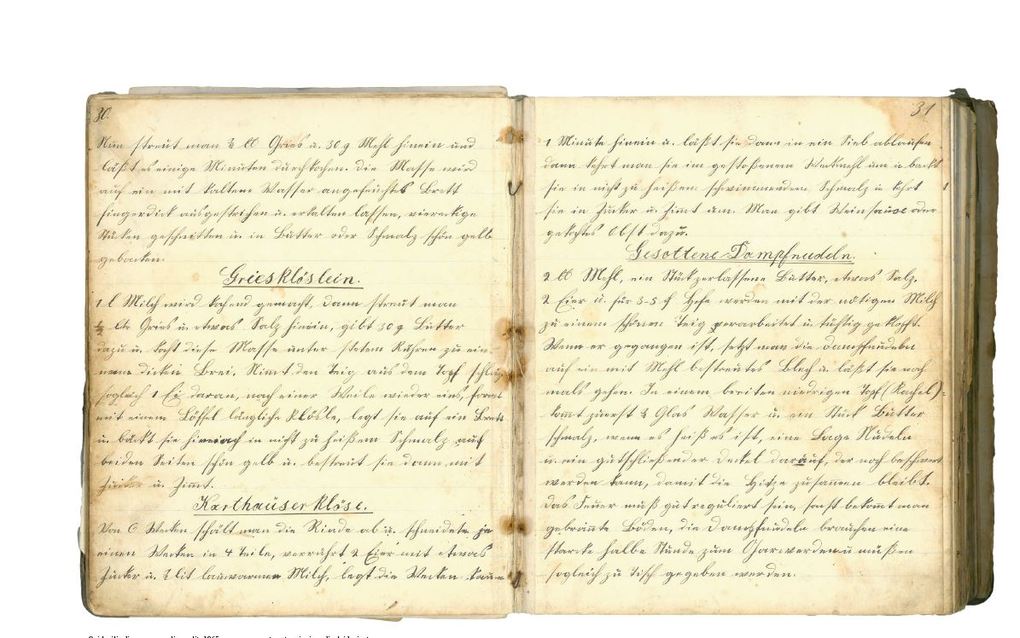 30.
Nun streut man ½ ℔ Gries u. 30 g Mehl hinein und
läßt es einige Minuten durchkochen. Die Masse wird
auf ein mit kaltem Wasser angefeuchtes Brett
fingerdick ausgestrichen u. erkalten lassen, viereckige
Stücken geschnitten u. in Butter oder Schmalz schön gelb
gebacken.
Griesklöslein.
1 l Milch wird kochend gemacht, dann streut man
½ ℔ Gries u. etwas Salz hinein, gibt 30 g Butter
dazu u. kocht diese Masse unter stetem Rühren zu ein
dicken Brei. Nimt den Teig aus dem Topf
sogleich 1 Ei daran, nach einer Weile wieder eins,
mit einem Löffel längliche Klösle, legt sie auf ein Brett
u. bäckt sie in nicht zu heißem Schmalz auf
beiden Seiten schön gelb u. bestreut sie dann mit
Zucker u. Zimmt.
Karthäuser klöse.
Von 6 Wecken schält man die Rinde ab u. schneidet je
einen Wecken in 4 Teile, verrührt 2 Eier mit etwas
Zucker u. lit lauwarmen Milch, legt die Wecken kaum
31
1 Minute hinein u. läßt sie dann in ein Sieb ablaufen
dann kehrt man sie im gestoßenem Weckmehl um u. backt
sie in nicht zu heißem schwimmenden Schmalz u. kehrt
sie in Zucker u. Zimt um. Man gibt Weinsauce oder
gekochtes Obst dazu.
Gesottene Dampfnudeln.
2 ℔ Mehl, ein Stück zerlassene Butter, etwas Salz,
2 Eier u. für 3-5 Hefe werden mit der nötigen Milch
zu einem schönen Teig verarbeitet u. tüchtig geklopft.
Wenn er gegangen ist, setzt man die Dampfnudeln
auf ein mit Mehl bestreutes Blech u. läßt sie noch
mals gehen. In einem breiten niedrigen Topf (Kachel)
komt zuerst Glas Wasser u. ein Stück Butter
schmalz, wenn es heiß ist, eine Lage Nudeln
u. ein gutschließender Deckel darauf, der noch beschwert
werden kann, damit die Hitze zusammen bleibt.
Das Feuer muß gut reguliert sein, sonst bekomt man
gebrännte Böden, die Dampfnudeln brauchen eine
starke halbe Stunde zum Garwerden u. müßen
sogleich zu Tisch gegeben werden.